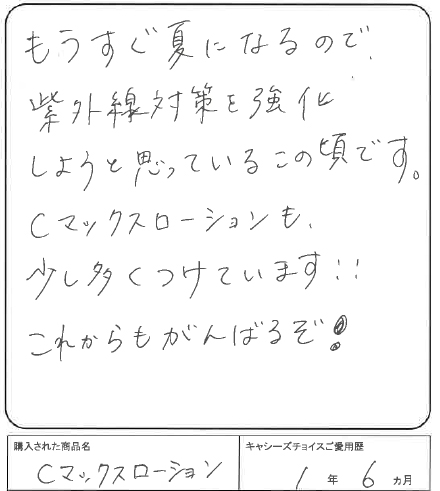 もうすぐ夏になるので、
紫外線対策を強化
しようと思っているこの頃です。
Cマックスローションも、
少し多くつけています!!
これからもがんばるぞ!
購入された商品名
Cマックスローション
キャシーズチョイスご愛用歴
1年6ヵ月